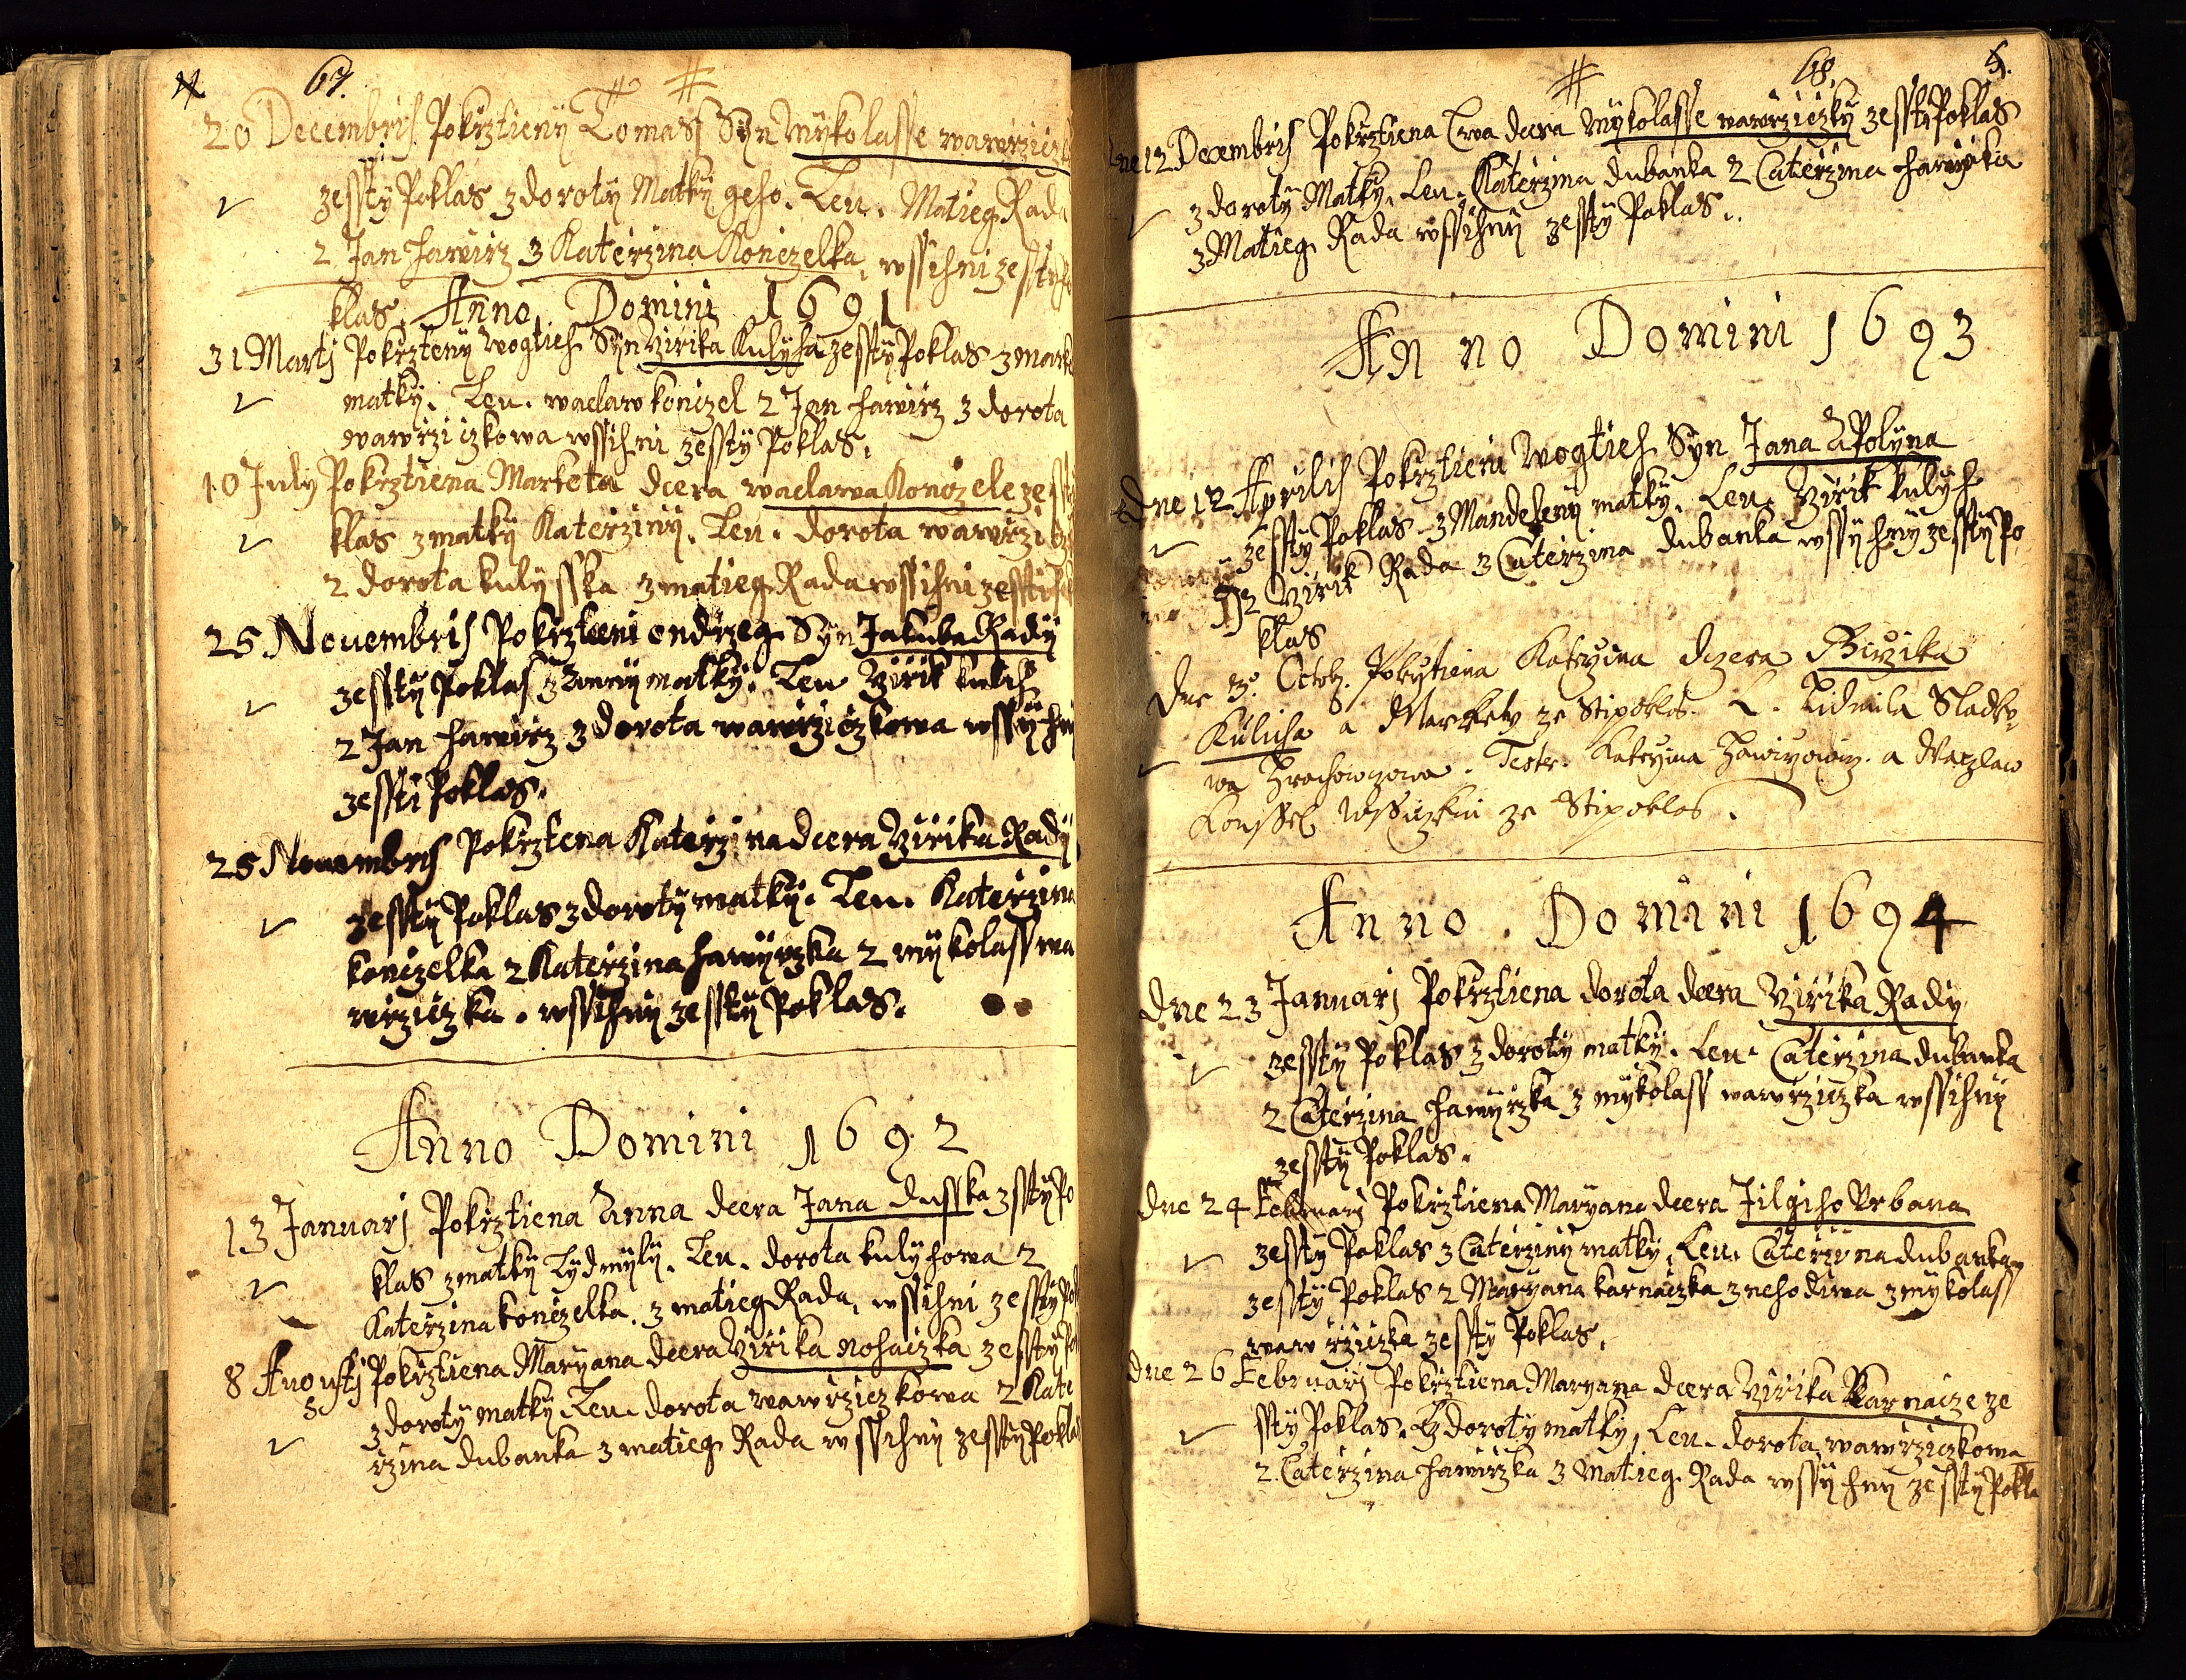 67.
20 Decembris Pokrztieny Tomass Syn Mykolasse wawrziczk
zesty Poklas z doroty Matky geho. Leu. Matieg Rada
2 Jan hawirz 3 Katerzina Koniczelka, wssihni ze sty Po
klas. Anno Domini 1691
31 Martj Pokrzteny wogtieh Syn Yirika Kulyha zesty Poklas z mark
matky. Leu. waclaw koniczel 2 Jan hawirz 3 dorota
wawrziczkowa wssihni zesty Poklas.
10 July Pokrztiena Marketa dcera waclawa Koniczele ze sty
klas z matky Katerziny. Leu. dorota wawrzicz
2 dorota kulysska 3 matieg Rada wssihni zesti
25 Novembris Pokrztieni ondrzeg Syn Jakuba Rady
zesty Poklas z Anny matky. Leu Yirik kulih
2 Jan hawirz 3 dorota wawrziczkowa wssyhni
zesti Poklas.
25 Novembris Pokrztena Katerzina dcera Yirika Rady
zesty Poklas z doroty matky. Leu. Katerzina
koniczelka 2 Katerzina hawyrzka 2 mykolass wa
wrziczka. wssihny zesty Poklas.
Anno Domini 1692
13 Januarj Pokrztiena Anna dcera Jana dusska z sty Po
klas z matky Lydmyly. Leu. dorota kulyhowa 2
Katerzina koniczelka. 3 matieg Rada, wssihni zesty Pok
8 Augustj Pokrztiena Maryana dcera Yirika nohaczka zesty Po
z doroty matky. Leu. dorota wawrziczkowa 2 Kate
rzina dubanka 3 matieg Rada wssihny zesty Poklas
68.
dne 12 Decembris Pokrztiena Ewa dcera Mykolasse wawrziczky zesty Poklas
z doroty Matky. Leu. Katerzina dubanka 2 Caterzina hawyrka
3 Matieg Rada wssihny zesty Poklas.
Anno Domini 1693
dne 12 Aprilis Pokrztieni wogtieh Syn Jana APolyna
zesty Poklas z Mandeleny matky. Leu. Yirik kulyh
2 Yirik Rada 3 Caterzina dubanka wssyhny zesty Po
klas
Dne 3. Octob. Pokrztiena Katerzina dczera Girzika
Kulicha a Markety ze Stipoklas. L. Lidmila Sladko
wa Hrochowczowa. Teste. Katerzina Hawirzowicz. a Waczlaw
Konssel wssiczkni ze Stipoklas.
Anno. Domini 1694
dne 23 Januarj Pokrztiena dorota dcera Yirika Rady
zesty Poklas z doroty matky. Leu. Caterzina dubanka
2 Caterzina hawyrzka 3 mykolass wawrziczka wssihny
zesty Poklas.
dne 24 Februarj Pokrztiena Maryana dcera Jilgiho Vrbana
zesty Poklas z Caterziny matky, Leu. Caterzina dubanka
zesty Poklas 2 Maryana karnaczka z nehodiwa 3 mykolass
wawrziczka zesty Poklas.
dne 26 Februarj Pokrztiena Maryana dcera Yirika Karnacze ze
sty Poklas. z doroty matky, Leu. dorota wawrziczkowa
2 Caterzina hawirzka 3 Matieg. Rada wssyhny zesty Pokla